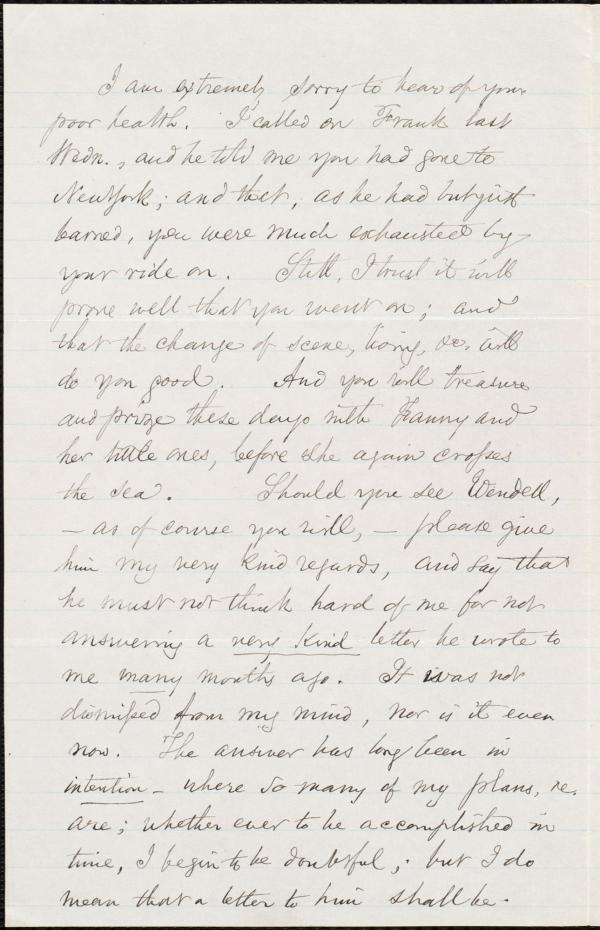 I am extremely sorry to hear of your
poor health. I called on Frank last
Wedn., and he told me you had gone to
New York; and that, as he had but just
learned, you were much exhausted by
your ride on. Still, I trust it will
prove well that you went on; and
that the change of scene, living, &c. will
do you good. And you will treasure
and prize these days with Fanny and
her little ones, before she again crosses
the sea. Should you see Wendell,
— as of course you will, — please give
him my very kind regards, and say that
he must not think hard of me for not
answering a very kind letter he wrote to
me many months ago. It was not
dismissed from my mind, nor is it even
now. The answer has long been in
intention — where so many of my plans, &c.
are; whether ever to be accomplished in
time, I begin to be doubtful; but I do
mean that a letter to him shall be.